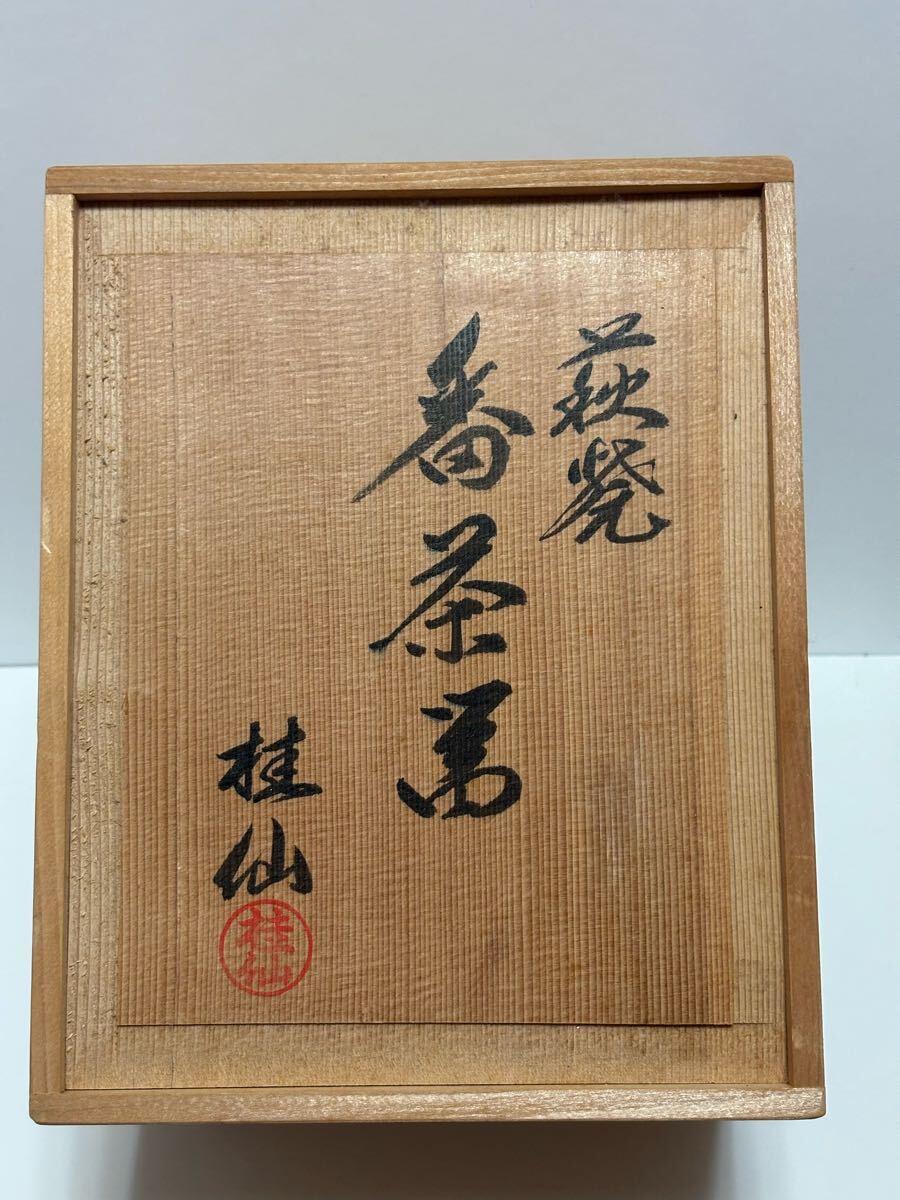 萩焼
番茶器
桂仙
桂仙